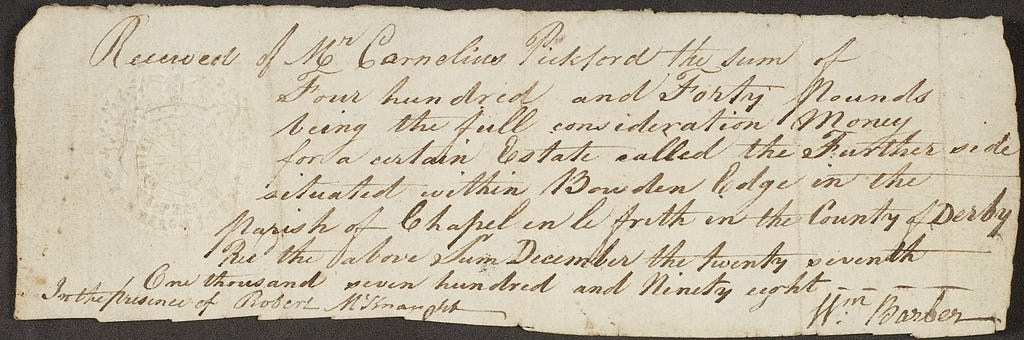 Received of Mr Cornelius Pickford the sum of
Four hundred and Forty Pounds
being the full consideration Money
for a certain Estate called the Further side
situated within Bowden Edge in the
Parish of Chapel en le frith in the County of Derby
Rec the above Sum December the twenty seventh
One thousand seven hundred and Ninety eight
In the presence of Robert McKnaught
Wm Barber